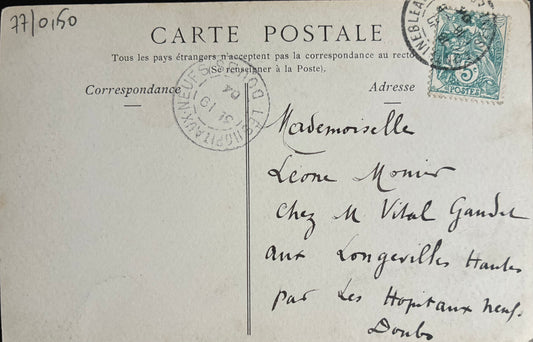 77/0,50
CARTE POSTALE
Tous les pays étrangers n'acceptent pas la correspondance au recto
(Se renseigner à la Poste).
Correspondance
Adresse
LES HOPITAUX-NEUFS DOUBS
31
04
5
POSTES
Mademoiselle
Léone Monier
chez M Vital Gaudet
aux Longevilles Hautes
par Les Hopitaux neufs
Doubs